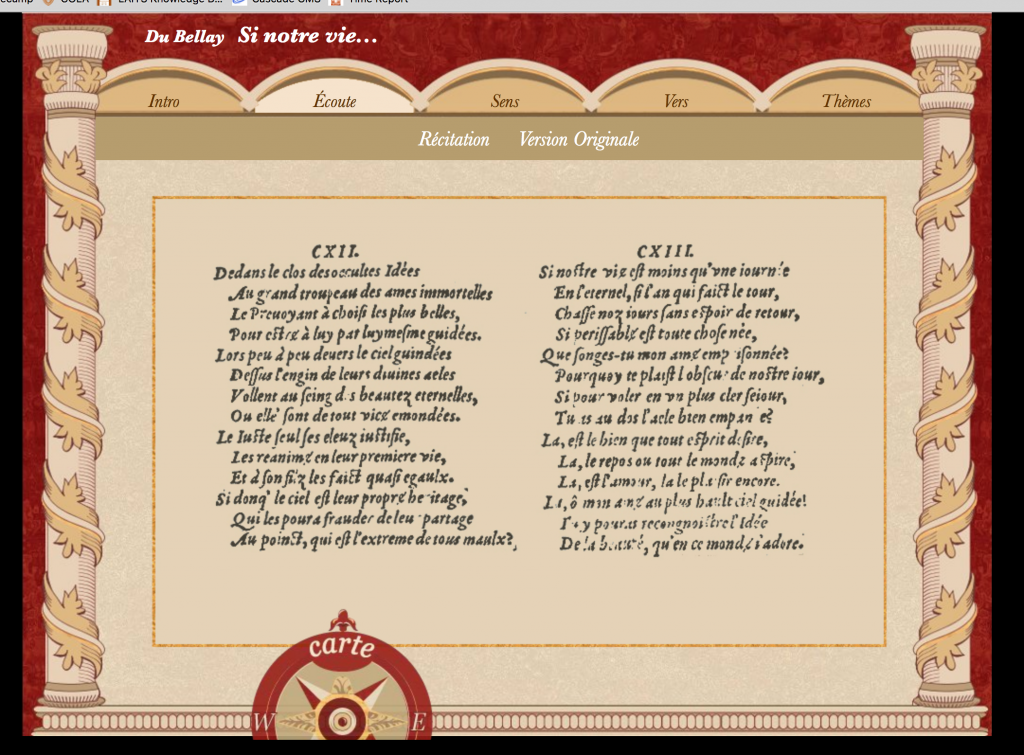 Du Bellay Si notre vie...
Intro
Écoute
Sens
Vers
Thèmes
Récitation Version Originale
CXII.
Dedans le clos des occultes Idées
Au grand troupeau des ames immortelles
Le Preuoyant à choisi les plus belles,
Pour estre à luy par luymesme guidées.
Lors peu à peu deuers le ciel guindées
Dessus l'engin de leurs diuines aeles
Vollent au seing des beautez eternelles,
Ou elle' sont de tout vice emondées.
Le Iuste seul ses eleuz iustifie,
Les reanime en leur premiere vie,
Et à son filz les faict quasi egaulx.
Si donq' le ciel est leur propre heritage,
Qui les poura frauder de leur partage
Au poinct, qui est l'extreme de tous maulx?
CXIII.
Si nostre vie est moins qu'vne iournée
En l'eternel, si l'an qui faict le tour,
Chasse noz iours sans espoir de retour,
Si perissable est toute chose née,
Que songes-tu mon ame emprisonnée?
Pourquoy te plaist l'obscur de nostre iour,
Si pour voler en vn plus cler seiour,
Tu as au dos l'aele bien empanée?
La, est le bien que tout esprit desire,
La, le repos ou tout le monde aspire,
La, est l'amour, la le plaisir encore.
La, ô mon ame au plus hault ciel guidée!
Tu y pouras recongnoistre l'Idée
De la beauté, qu'en ce monde i'adore.
carte
W E